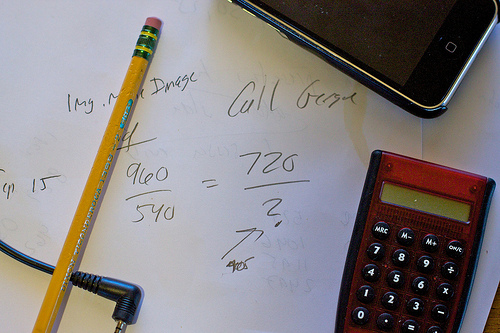 Img. Image
Call George
960 = 720
540 ?
15
MRC M- M+ ON/C
7 8 9 ÷
4 5 6 x
1 2 3 -
0 . = +